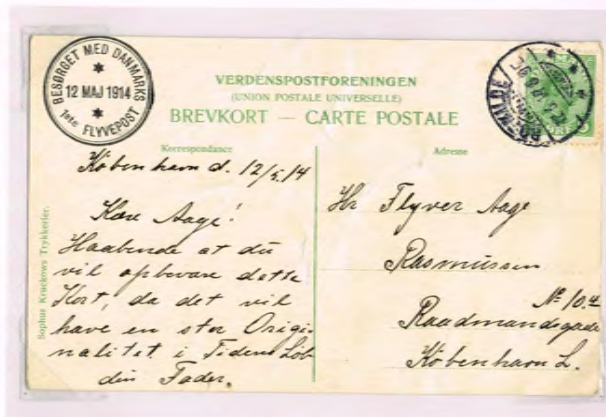 BESØRGET MED DANMARKS
12 MAJ 1914
1ste FLYVEPOST
VERDENSPOSTFORENINGEN
(UNION POSTALE UNIVERSELLE)
BREVKORT — CARTE POSTALE
Korrespondance
København d. 12/5.14
Kære Aage!
Haabende at du
vil opbevare dette
Kort, da det vil
have en stor Origi-
nalitet i Tidens Løb
din Fader.
Sophus Kruckows Trykkerier.
Adresse
Hr Flyver Aage
Rasmussen
No 10.4
Raadmandsgade
København L.
ROSKILDE